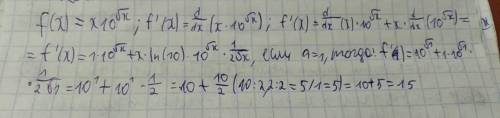 f(x) = x·10^√x ; f'(x) = d/dx (x·10^√x) ; f'(x) = d/dx (x)·10^√x + x· d/dx (10^√x) =
= f'(x) = 1·10^√x + x·ln(10)·10^√x · 1/2√x, если a=1, тогда: f'(1) = 10^√1 + 1·10^√1 ·
· 1/2√1 = 10^1 + 10^1 · 1/2 = 10 + 10/2 (10:2, 2:2 = 5/1 = 5) = 10+5 = 15